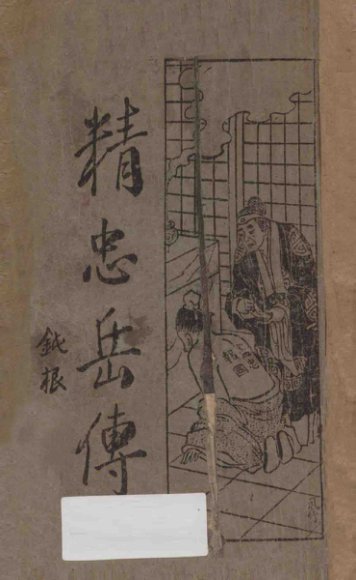 精忠岳傳
鈍根
精忠
報國